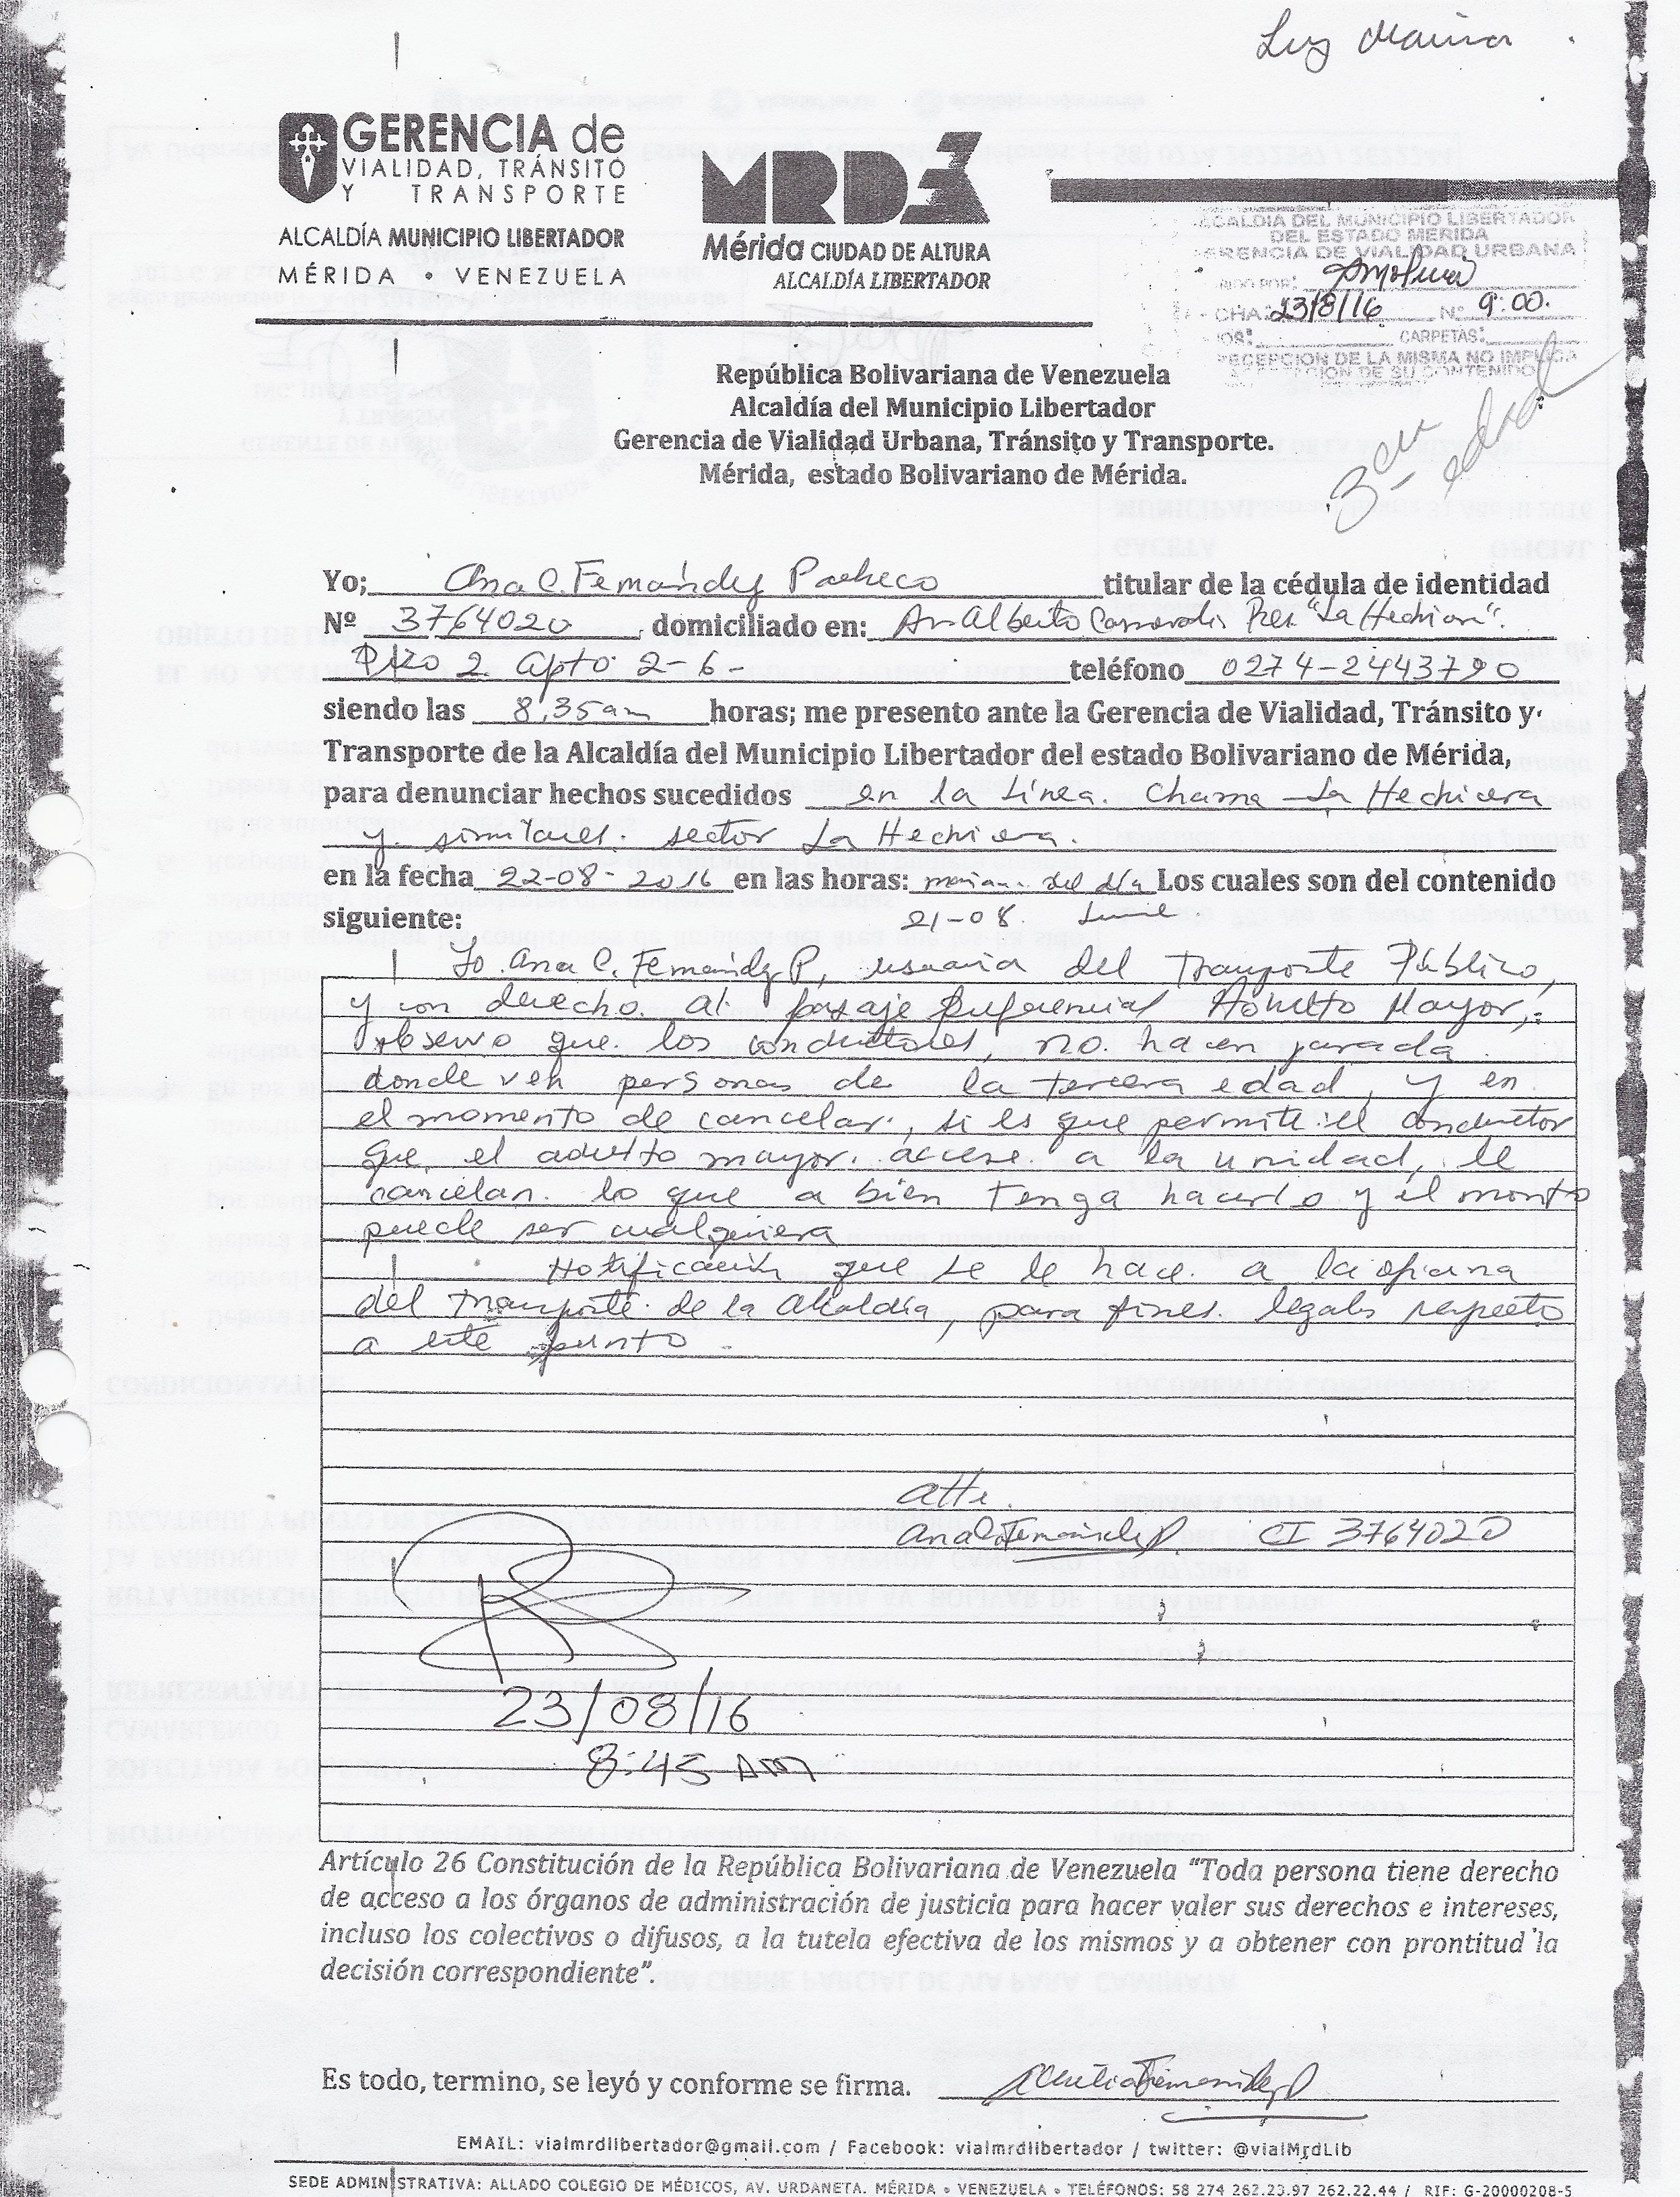 Luz Marina
GERENCIA de
VIALIDAD, TRÁNSITO
Y TRANSPORTE
ALCALDÍA MUNICIPIO LIBERTADOR
MÉRIDA • VENEZUELA
MRD
Mérida CIUDAD DE ALTURA
ALCALDÍA LIBERTADOR
CALDIA DEL MUNICIPIO LIBERTADOR
DEL ESTADO MERIDA
ERENCIA DE VIALIDAD URBANA
IDO POR: AMolina
CHA: 23/8/16 Nº 9:00.
OS: CARPETAS:
RECEPCION DE LA MISMA NO IMPLICA
DE SU CONTENIDO
3era edad
República Bolivariana de Venezuela
Alcaldía del Municipio Libertador
Gerencia de Vialidad Urbana, Tránsito y Transporte.
Mérida, estado Bolivariano de Mérida.
Yo; Ana C. Fernández Pacheco titular de la cédula de identidad
Nº 3764020, domiciliado en: Av Alberto Carnevalli Res "La Hechicera".
Piso 2. apto 2-6- teléfono 0274-2443790
siendo las 8,35am horas; me presento ante la Gerencia de Vialidad, Tránsito y
Transporte de la Alcaldía del Municipio Libertador del estado Bolivariano de Mérida,
para denunciar hechos sucedidos en la Línea. Chama - La Hechicera
y similares. sector La Hechicera.
en la fecha 22-08-2016 en las horas: mañana del día Los cuales son del contenido
siguiente: 21-08.
Yo Ana C. Fernández P, usuaria del Transporte Público,
y con derecho al pasaje preferencial Adulto Mayor,
observo que los conductores, no hacen parada
donde ven personas de la tercera edad, y en
el momento de cancelar, si es que permite el conductor
que el adulto mayor. accese a la unidad, le
cancelan. lo que a bien tenga hacerlo y el monto
puede ser cualquiera
Notificación que se le hace a la oficina
del transporte de la Alcaldía, para fines legales respecto
a este punto.
Atte.
Ana C. Fernández P CI 3764020
23/08/16
8:45 AM
Artículo 26 Constitución de la República Bolivariana de Venezuela "Toda persona tiene derecho
de acceso a los órganos de administración de justicia para hacer valer sus derechos e intereses,
incluso los colectivos o difusos, a la tutela efectiva de los mismos y a obtener con prontitud la
decisión correspondiente".
Es todo, termino, se leyó y conforme se firma.
EMAIL: vialmrdlibertador@gmail.com / Facebook: vialmrdlibertador / twitter: @vialMrdLib
SEDE ADMINISTRATIVA: ALLADO COLEGIO DE MÉDICOS, AV. URDANETA. MÉRIDA • VENEZUELA • TELÉFONOS: 58 274 262.23.97 262.22.44 / RIF: G-20000208-5